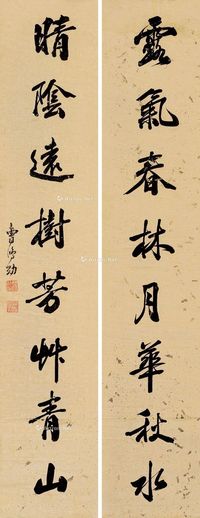 露氣春林月華秋水
晴陰遠樹芳艸青山
曹鴻勛